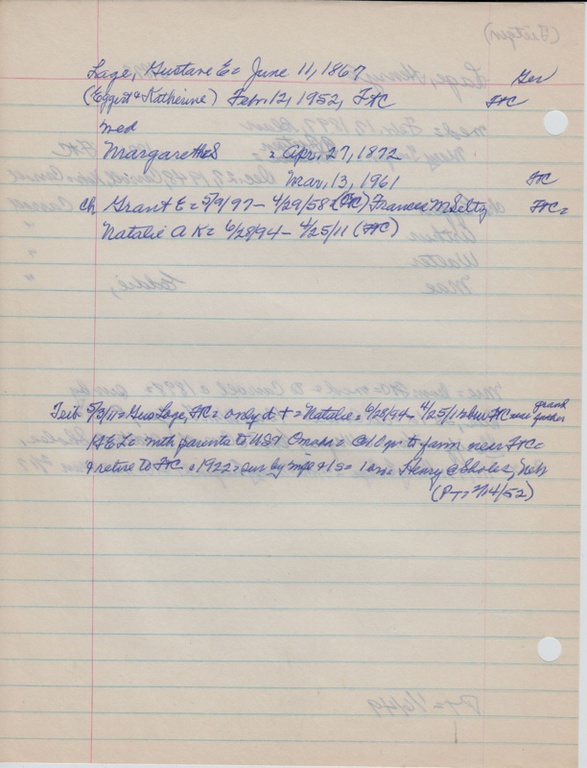 Lage, Gustave E = June 11, 1867 Ger
(Eggert & Katherine) Feb. 12, 1952, FtC FtC
med
Margarethe S = Apr. 27, 1872
Mar. 13, 1961 FtC
Ch Grant E = 5/9/97 - 4/29/58 = (FtC) Frances M Seltz FtC =
Natalie A K = 6/28/94 - 4/25/11 (FtC)
Trib 5/3/11 = Gus Lage, FtC = only d + = Natalie = 6/28/94 - 4/25/11 = bur FtC near grand father
G E L = with parents to USA Omaha = @ 10 yr to farm near FtC =
& retire to FtC c 1922 = sur by wife & 1 s = 1 br = Henry @ Sholes, Neb
(PT = 2/14/52)